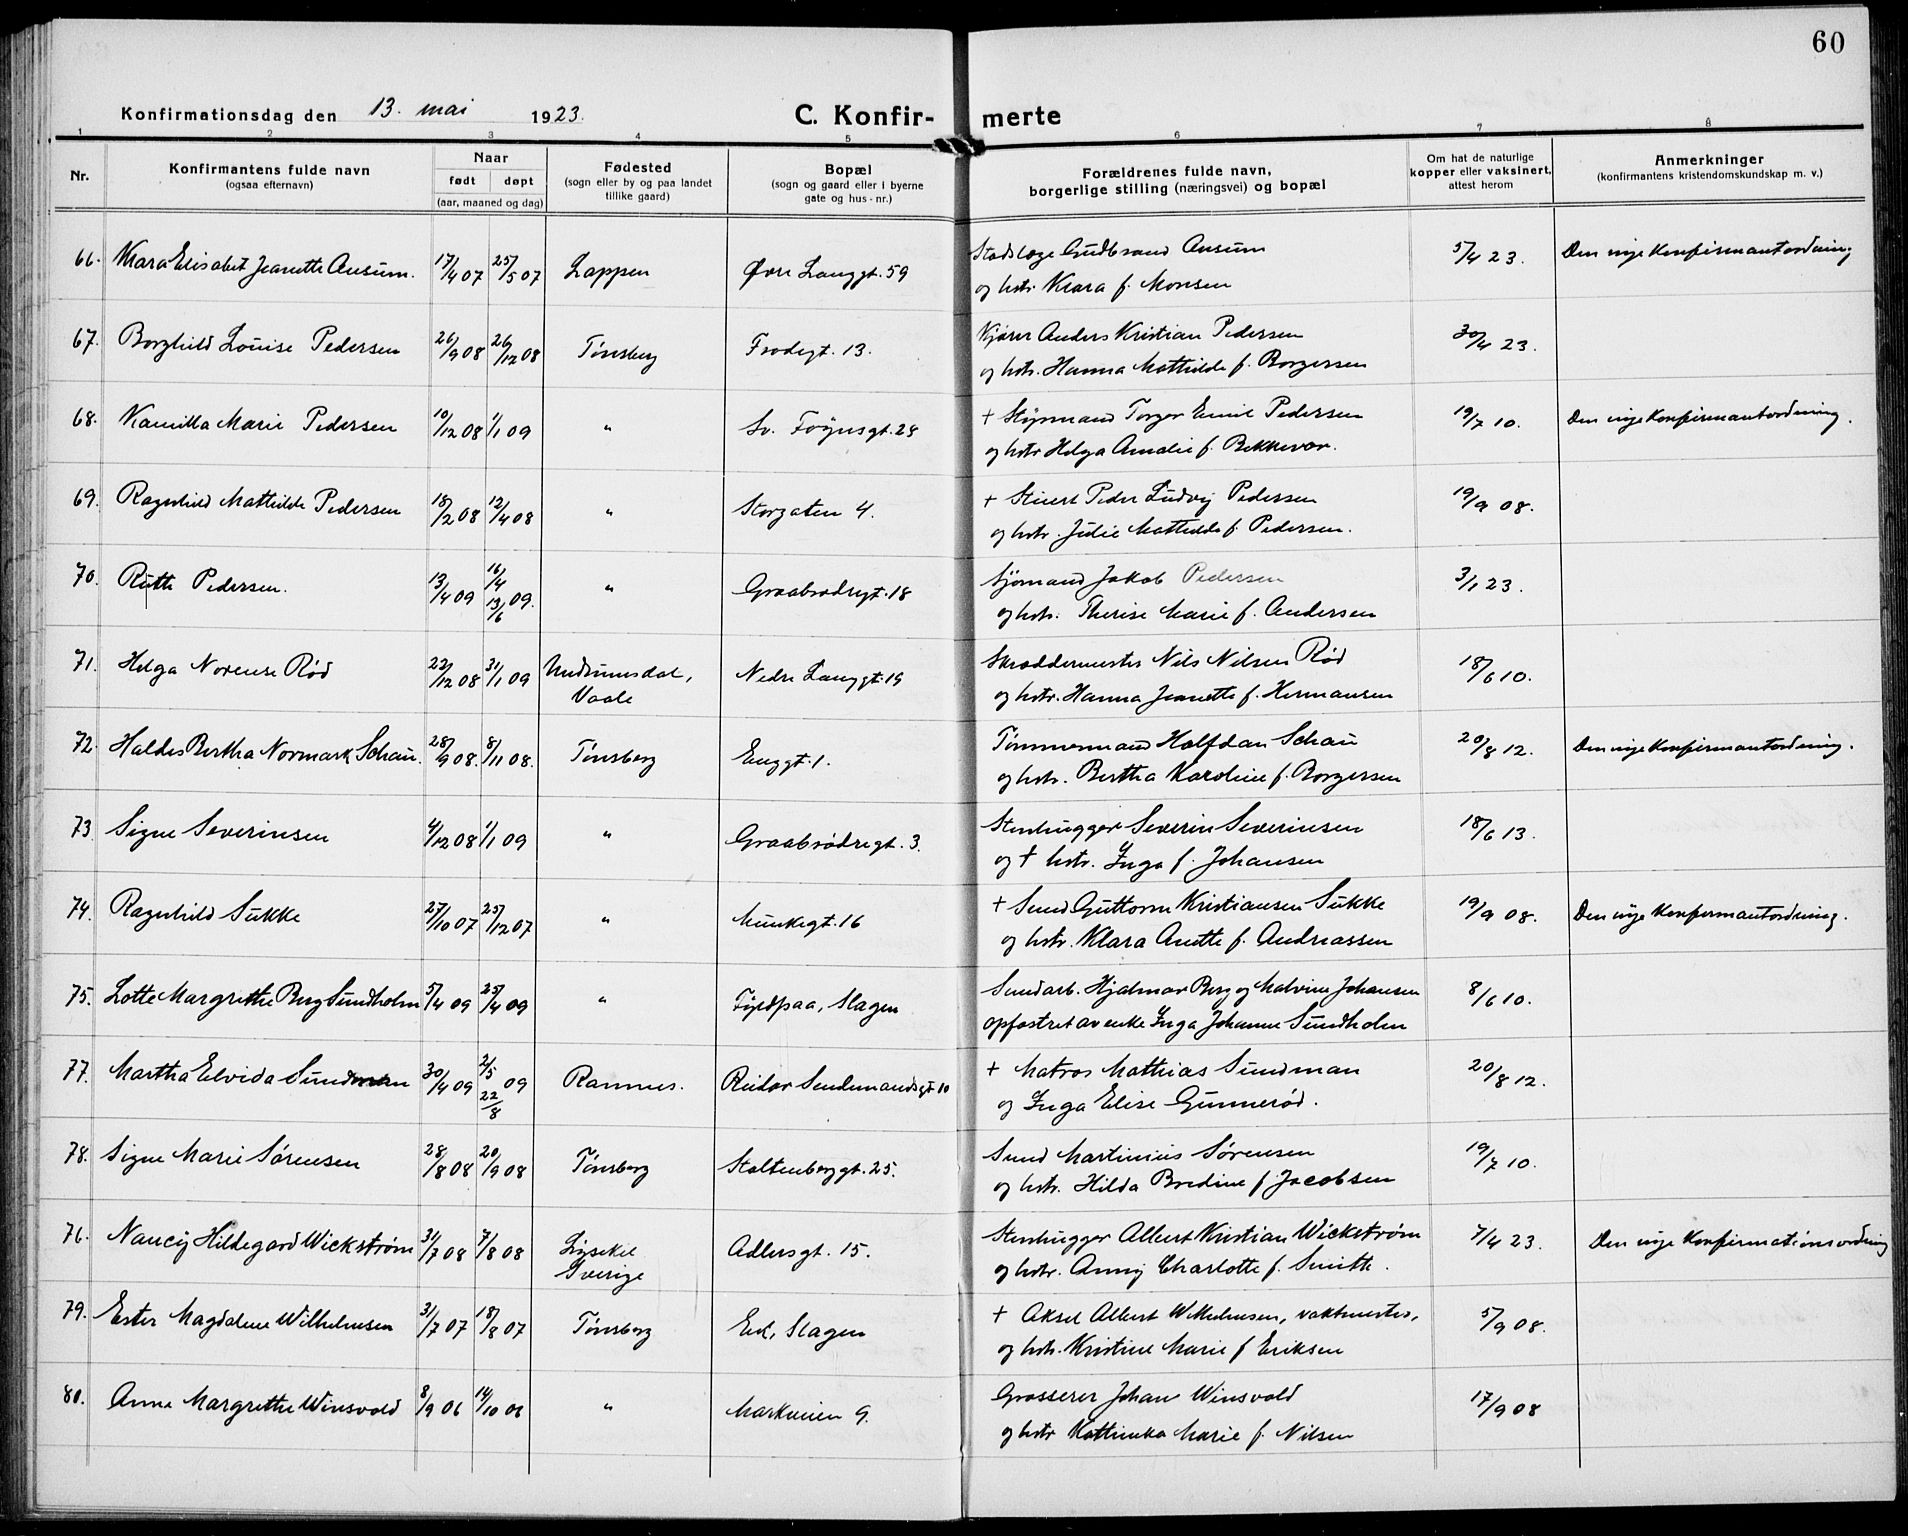 60
Konfirmationsdag den 13. mai 1923.
C. Konfirmerte
1 2 3 4 5 6 7 8
Nr.
Konfirmantens fulde navn
(ogsaa efternavn)
Naar
født døpt
(aar, maaned og dag)
Fødested
(sogn eller by og paa landet
tillike gaard)
Bopæl
(sogn og gaard eller i byerne
gate og hus-nr.)
Forældrenes fulde navn,
borgerlige stilling (næringsvei) og bopæl
Om hat de naturlige
kopper eller vaksinert,
attest herom
Anmerkninger
(konfirmantens kristendomskundskap m. v.)
66. Klara Elisabet Jeanette Ausum. 17/4 07 25/5 07 Lappen Øvre Langgt. 59 Stadslæge Gudbrand Ausum 5/4 23. Den nye Konfirmantordning
og hstr. Klara f. Monsen
67. Borghild Louise Pedersen 26/9 08 26/12 08 Tønsberg Frodegt. 13. Kjører Anders Kristian Pedersen 30/4 23.
og hstr. Hanna Mathilde f. Borgersen
68. Kamilla Marie Pedersen 10/12 08 1/1 09 " Sv. Føynsgt. 28 + Styrmand Torger Emil Pedersen 19/7 10. Den nye Konfirmantordning.
og hstr Helga Amalie f. Bekkevar.
69. Ragnhild Mathilde Pedersen 18/2 08 12/4 08 " Storgaten 4. + Stuert Peder Ludvig Pedersen 19/9 08.
og hstr. Julie Mathilde f. Pedersen.
70. Ruth Pedersen. 13/4 09 16/4 13/6 09. " Graabrødregt. 18 Sjømand Jakob Pedersen 3/1 23.
og hstr. Therese Marie f. Andersen
71. Helga Norense Rød 22/12 08 31/1 09 Undrumsdal, Nedre Langgt. 19 Skræddermester Nils Nilsen Rød 18/6 10.
Vaale og hstr. Hanna Jeanette f. Hermansen
72. Haldis Bertha Normark Schau. 28/9 08. 8/11 08. Tønsberg Enggt. 1. Tømmermand Halfdan Schau 20/8 12. Den nye Konfirmantordning.
og hstr. Bertha Karoline f. Borgersen
73 Signe Severinsen 4/12 08 1/1 09 " Graabrødregt. 3. Stenhugger Severin Severinsen 18/6 13.
og + hstr. Inga f. Johansen
74. Ragnhild Sukke 27/10 07 25/12 07 " Munkegt. 16 + Smed Guttorm Kristiansen Sukke 19/9 08. Den nye Konfirmantordning.
og hstr. Klara Anette f. Andreassen
75. Lotte Margrethe Berg Sundholm 5/4 09 25/4 09 " Slagen Smedarb. Hjalmar Berg og Malvine Johansen 8/6 10.
opfostret av enke Inga Johanne Sundholm
77. Martha Elvida Sundman 30/4 09 2/5 22/8 09 Ramnes. Reidar Sendemandsgt. 10 + Matros Mathias Sundman 20/8 12.
og Inga Elise Gunnerød.
78. Signe Marie Sørensen 28/8 08 20/9 08 Tønsberg Stoltenberggt. 25. Smed Martinius Sørensen 19/7 10.
og hstr. Hilda Bredine f. Jacobsen
76. Nancy Hildegard Wickstrøm 31/7 08 7/8 08 Lysekel Adlersgt. 15. Stenhugger Albert Kristian Wickstrøm 7/4 23. Den nye Konfirmationsordning
Sverige og hstr. Anny Charlotte f. Smith.
79. Ester Magdalene Wilhelmsen 31/7 07 18/8 07 Tønsberg Eik, Slagen + Aksel Albert Wilhelmsen, vaktmester, 5/9 08.
og hstr. Kristine Marie f Eriksen
80. Anna Margrethe Winsvold 8/9 06 14/10 06 " Markveien 9. Grosserer Johan Winsvold 17/9 08
og hstr Kathinka Marie f. Nilsen